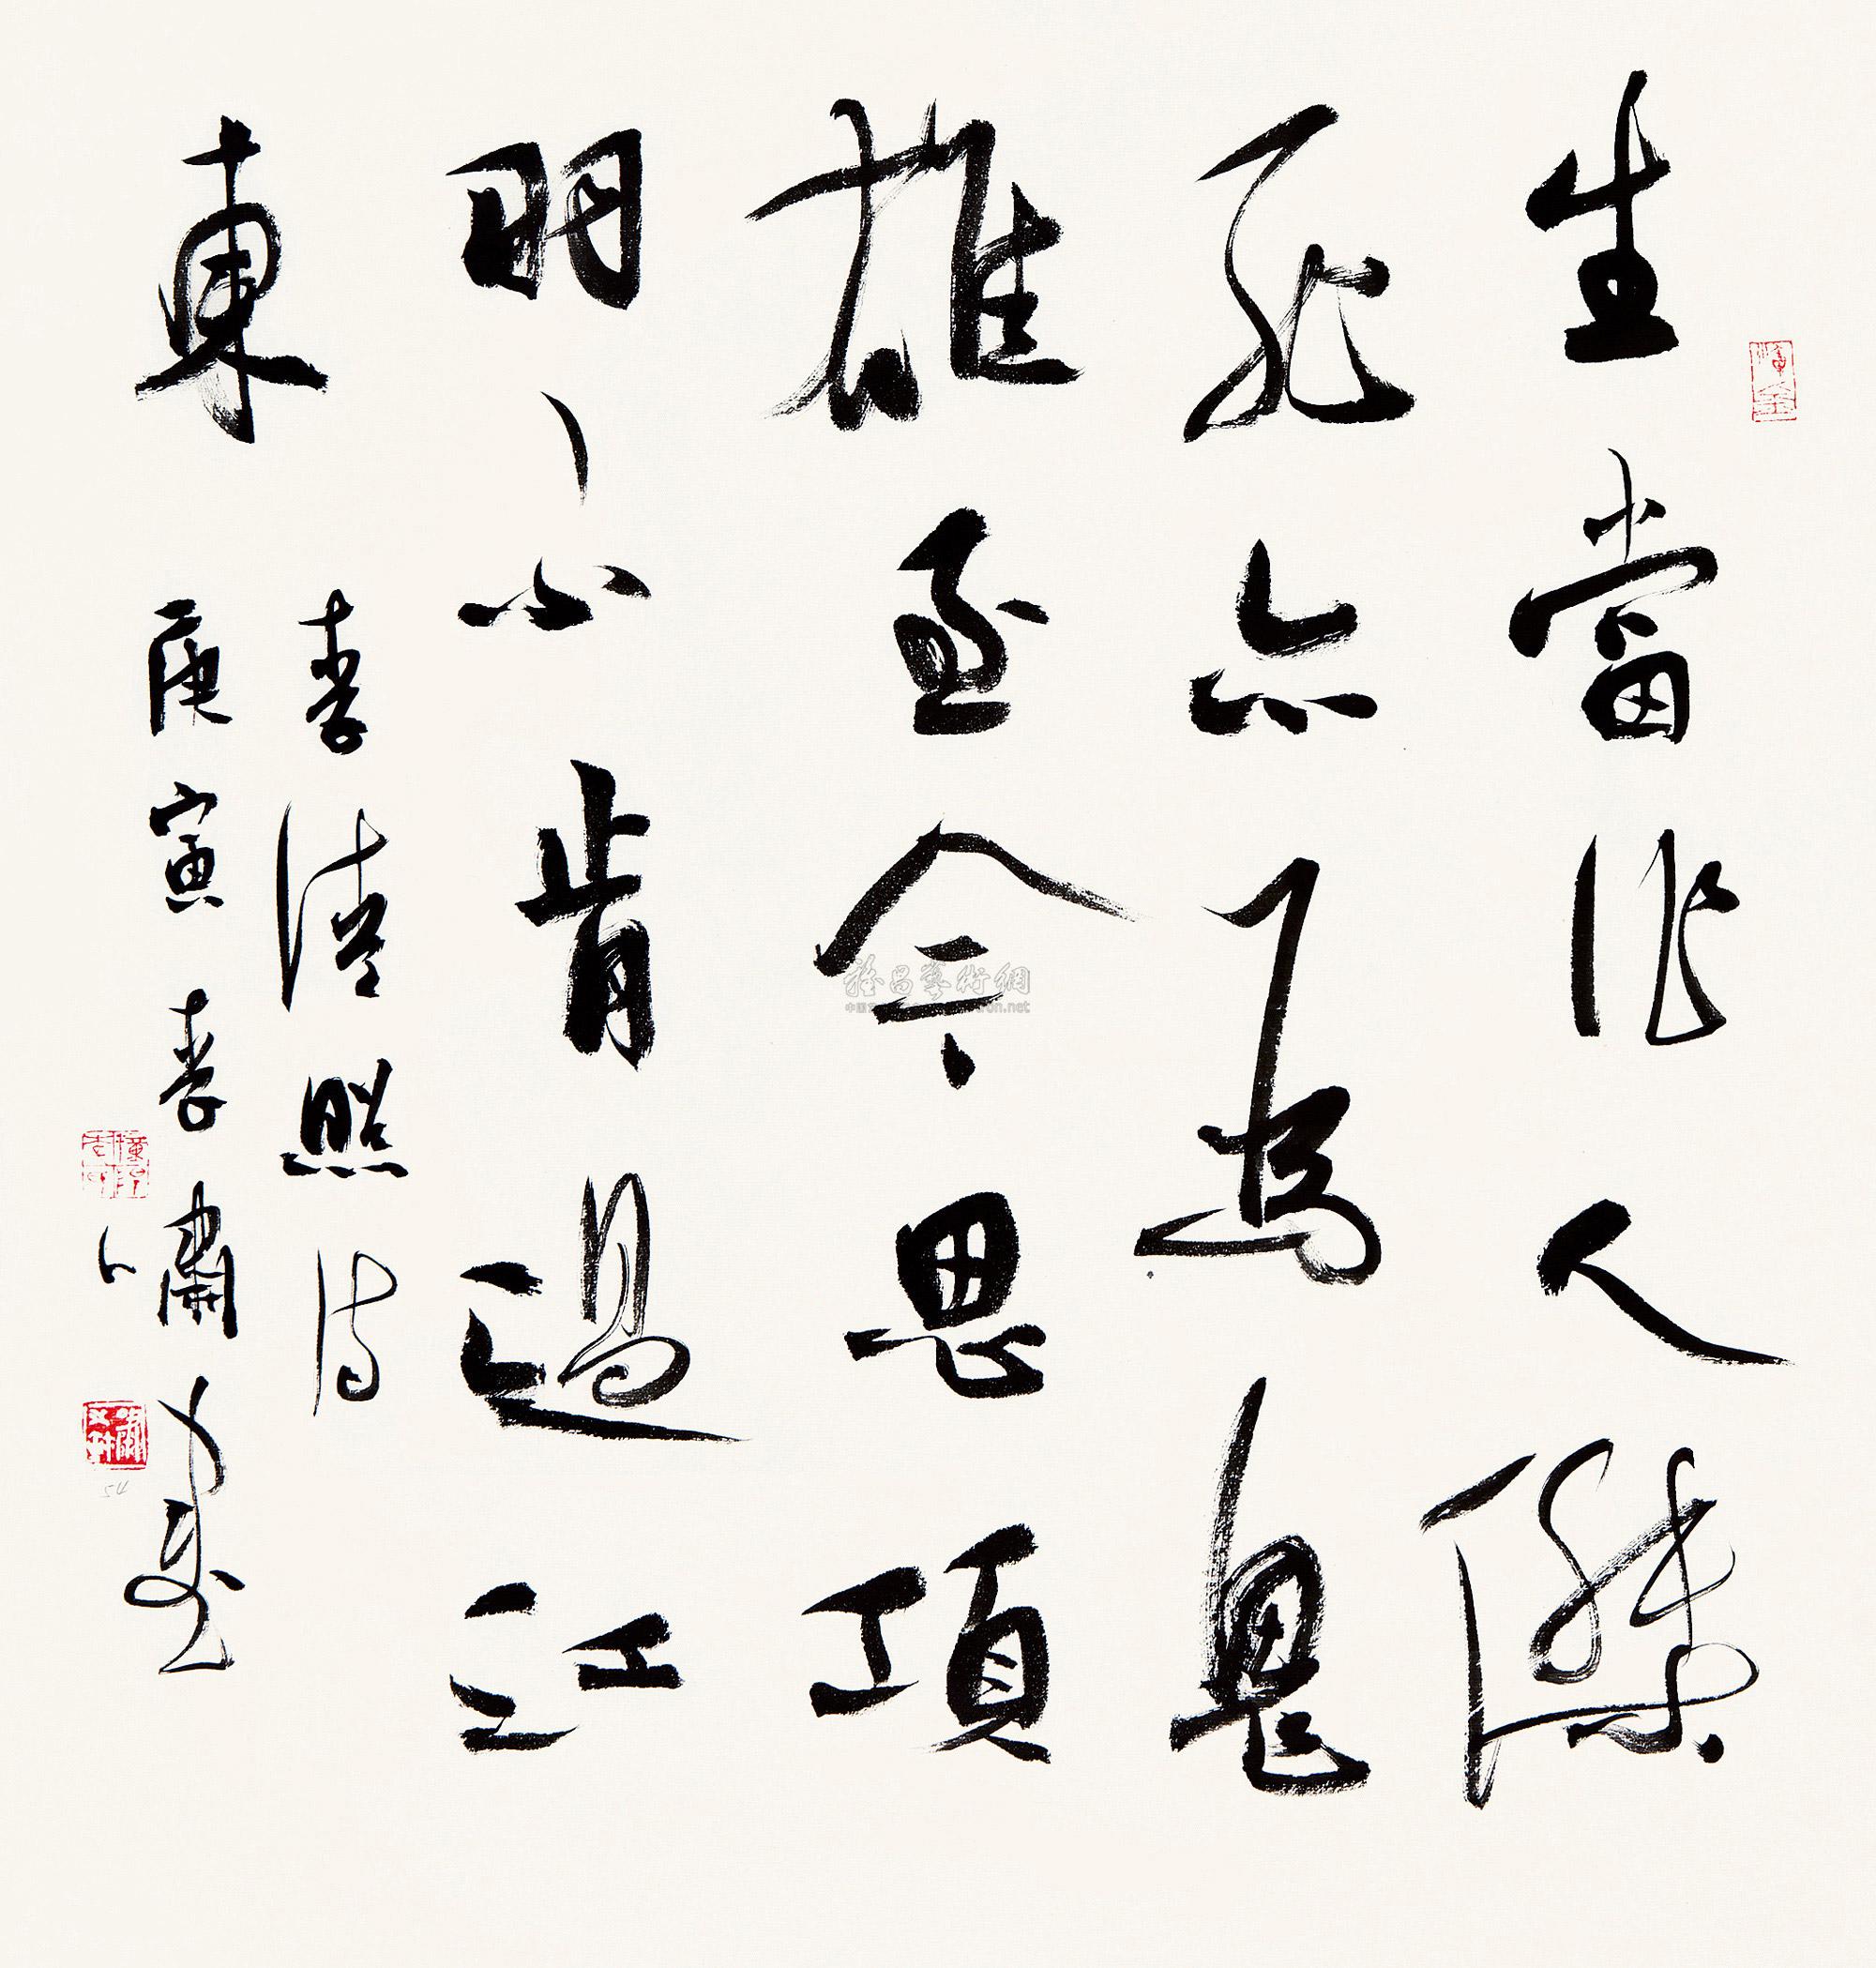 生當作人傑
死亦為鬼
雄至今思項
羽不肯過江
東
李清照詩
庚寅李嘯書
雅昌藝術網